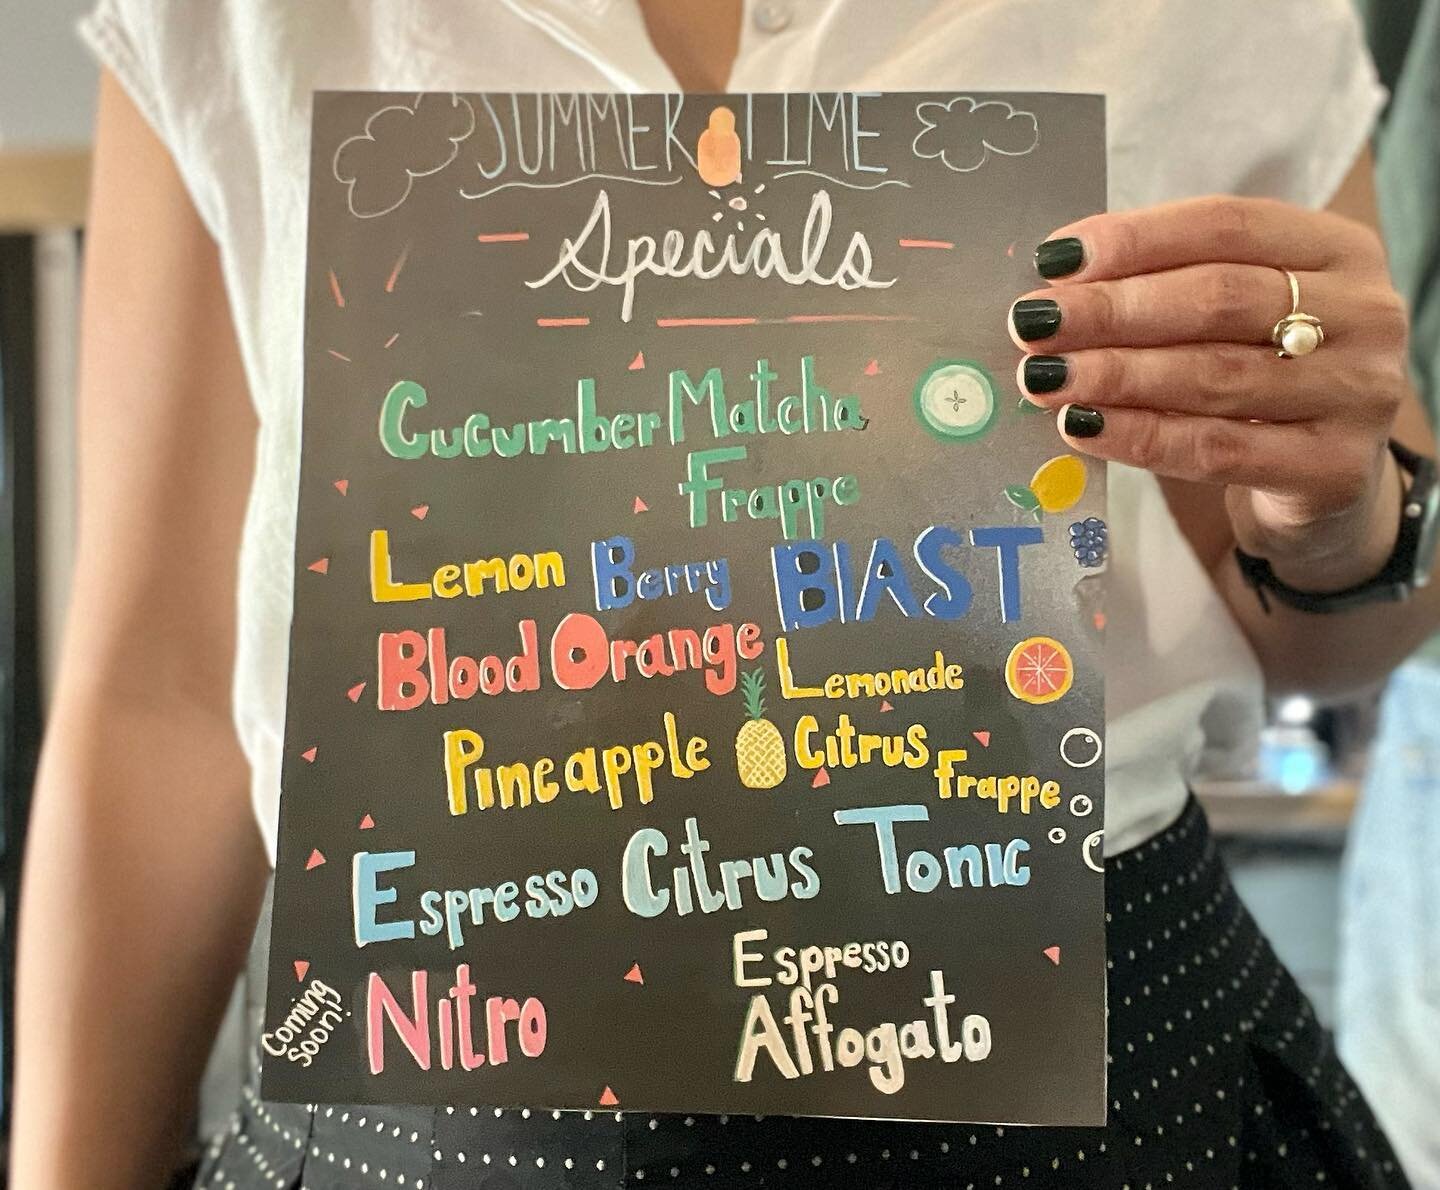 SUMMER TIME
Specials
Cucumber Matcha
Frappe
Lemon Berry BlAST
Blood Orange Lemonade
Pineapple Citrus Frappe
Espresso Citrus Tonic
Coming Soon!
Nitro
Espresso
Affogato